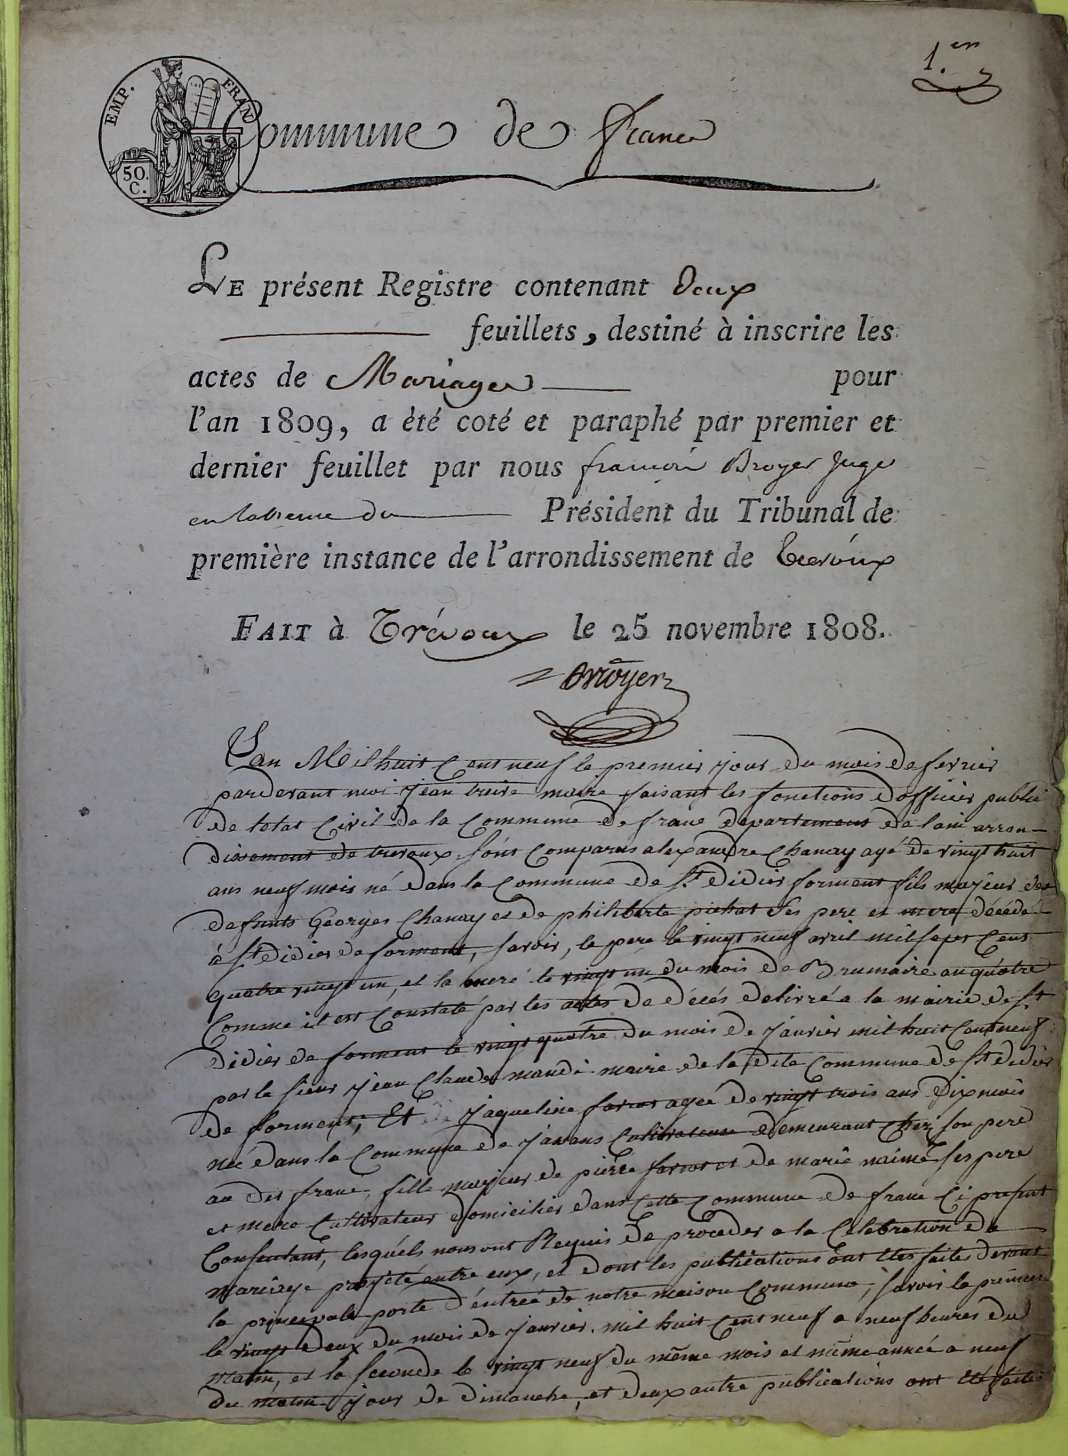 1.er
EMP. FRAN
50. C.
Commune de france
LE présent Registre contenant Deux
feuillets, destiné à inscrire les
actes de Mariages pour
l'an 1809, a été coté et paraphé par premier et
dernier feuillet par nous françois Broyer Juge
en labsence du Président du Tribunal de
première instance de l'arrondissement de Trévoux
FAIT à Trévoux le 25 novembre 1808.
Broyer
L'an Mil huit Cent neuf le premier jour du mois de fevrier
pardevant moi jean maire faisant les fonctions dofficier public
de letat Civil de la Commune de frane departement de lain arron-
dissement de trevoux sont Comparus alexandre Chanay agé de vingt huit
ans neuf mois né dans la Commune de St didier formant fils majeur des
defunts Georges Chanay et de philiberte pichat ses pere et mere décédé
à St didier de formant, savoir, le pere le vingt neuf avril mil sept Cent
quatre vingt un, et la mere le vingt un du mois de Brumaire an quatre
Comme il est Constaté par les actes de décés delivré a la mairie de St
didier de formant le vingt quatre du mois de janvier mil huit Cent neuf
par le sieur jean Claude maire de la dite Commune de St didier
de formant; Et jaqueline agée de vingt trois ans dix mois
née dans la Commune de Cultivateur demeurant Chez son pere
au dit frane, fille majeur de pierre et de marie ses pere
et mere Cultivateur domiciliés dans Cette Commune de frane Ci present
Consentant, lesquels nous ont Requis de proceder a la Celebration du
mariage projeté entre eux, et dont les publications ont etés faite devant
la principale porte d'entrée de notre maison Commune, savoir la premiere
le vingt deux du mois de janvier mil huit Cent neuf a neuf heures du
matin, et la seconde le vingt neuf du même mois et même année a neuf
du matin jour de dimanche, et deux autre publications ont été faite